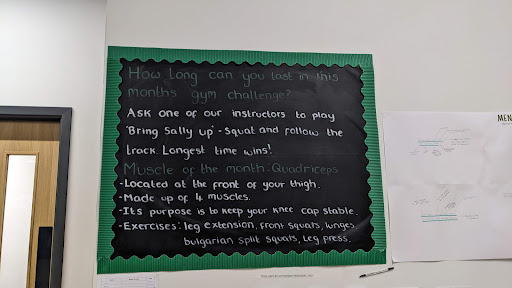 How long can you last in this
months gym challenge?
Ask one of our instructors to play
'Bring Sally up' - Squat and follow the
track Longest time wins!
Muscle of the month: Quadriceps
- Located at the front of your thigh.
- Made up of 4 muscles.
- Its purpose is to keep your knee cap stable.
- Exercises: leg extension, front squats, lunges,
bulgarian split squats, leg press.
MEN